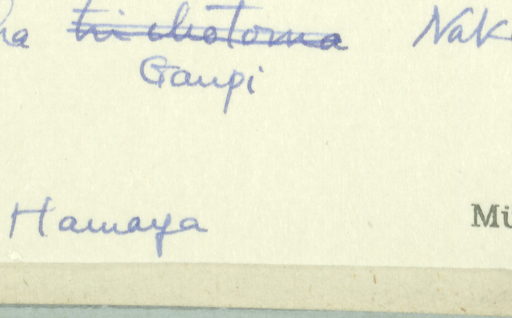 ha trichotoma Nak
Ganpi
Hamaya Mü